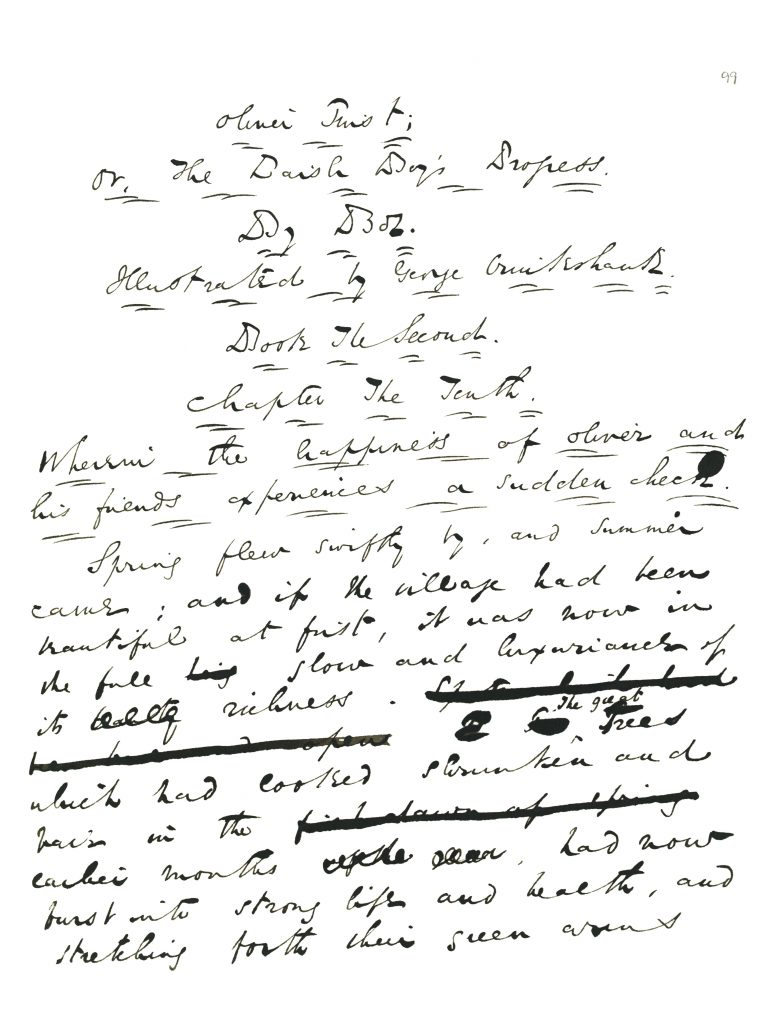 99
Oliver Twist;
or, The Parish Boy's Progress.
By Boz.
Illustrated by George Cruikshank.
Book The Second.
Chapter The Tenth.
Wherein the happiness of Oliver and
his friends experiences a sudden check.
Spring flew swiftly by, and summer
came; and if the village had been
beautiful at first, it was now in
the full glow and luxuriance of
its richness.
The great
Trees
which had looked shrunken and
bare in the
earlier months, had now
burst into strong life and health, and
stretching forth their green arms